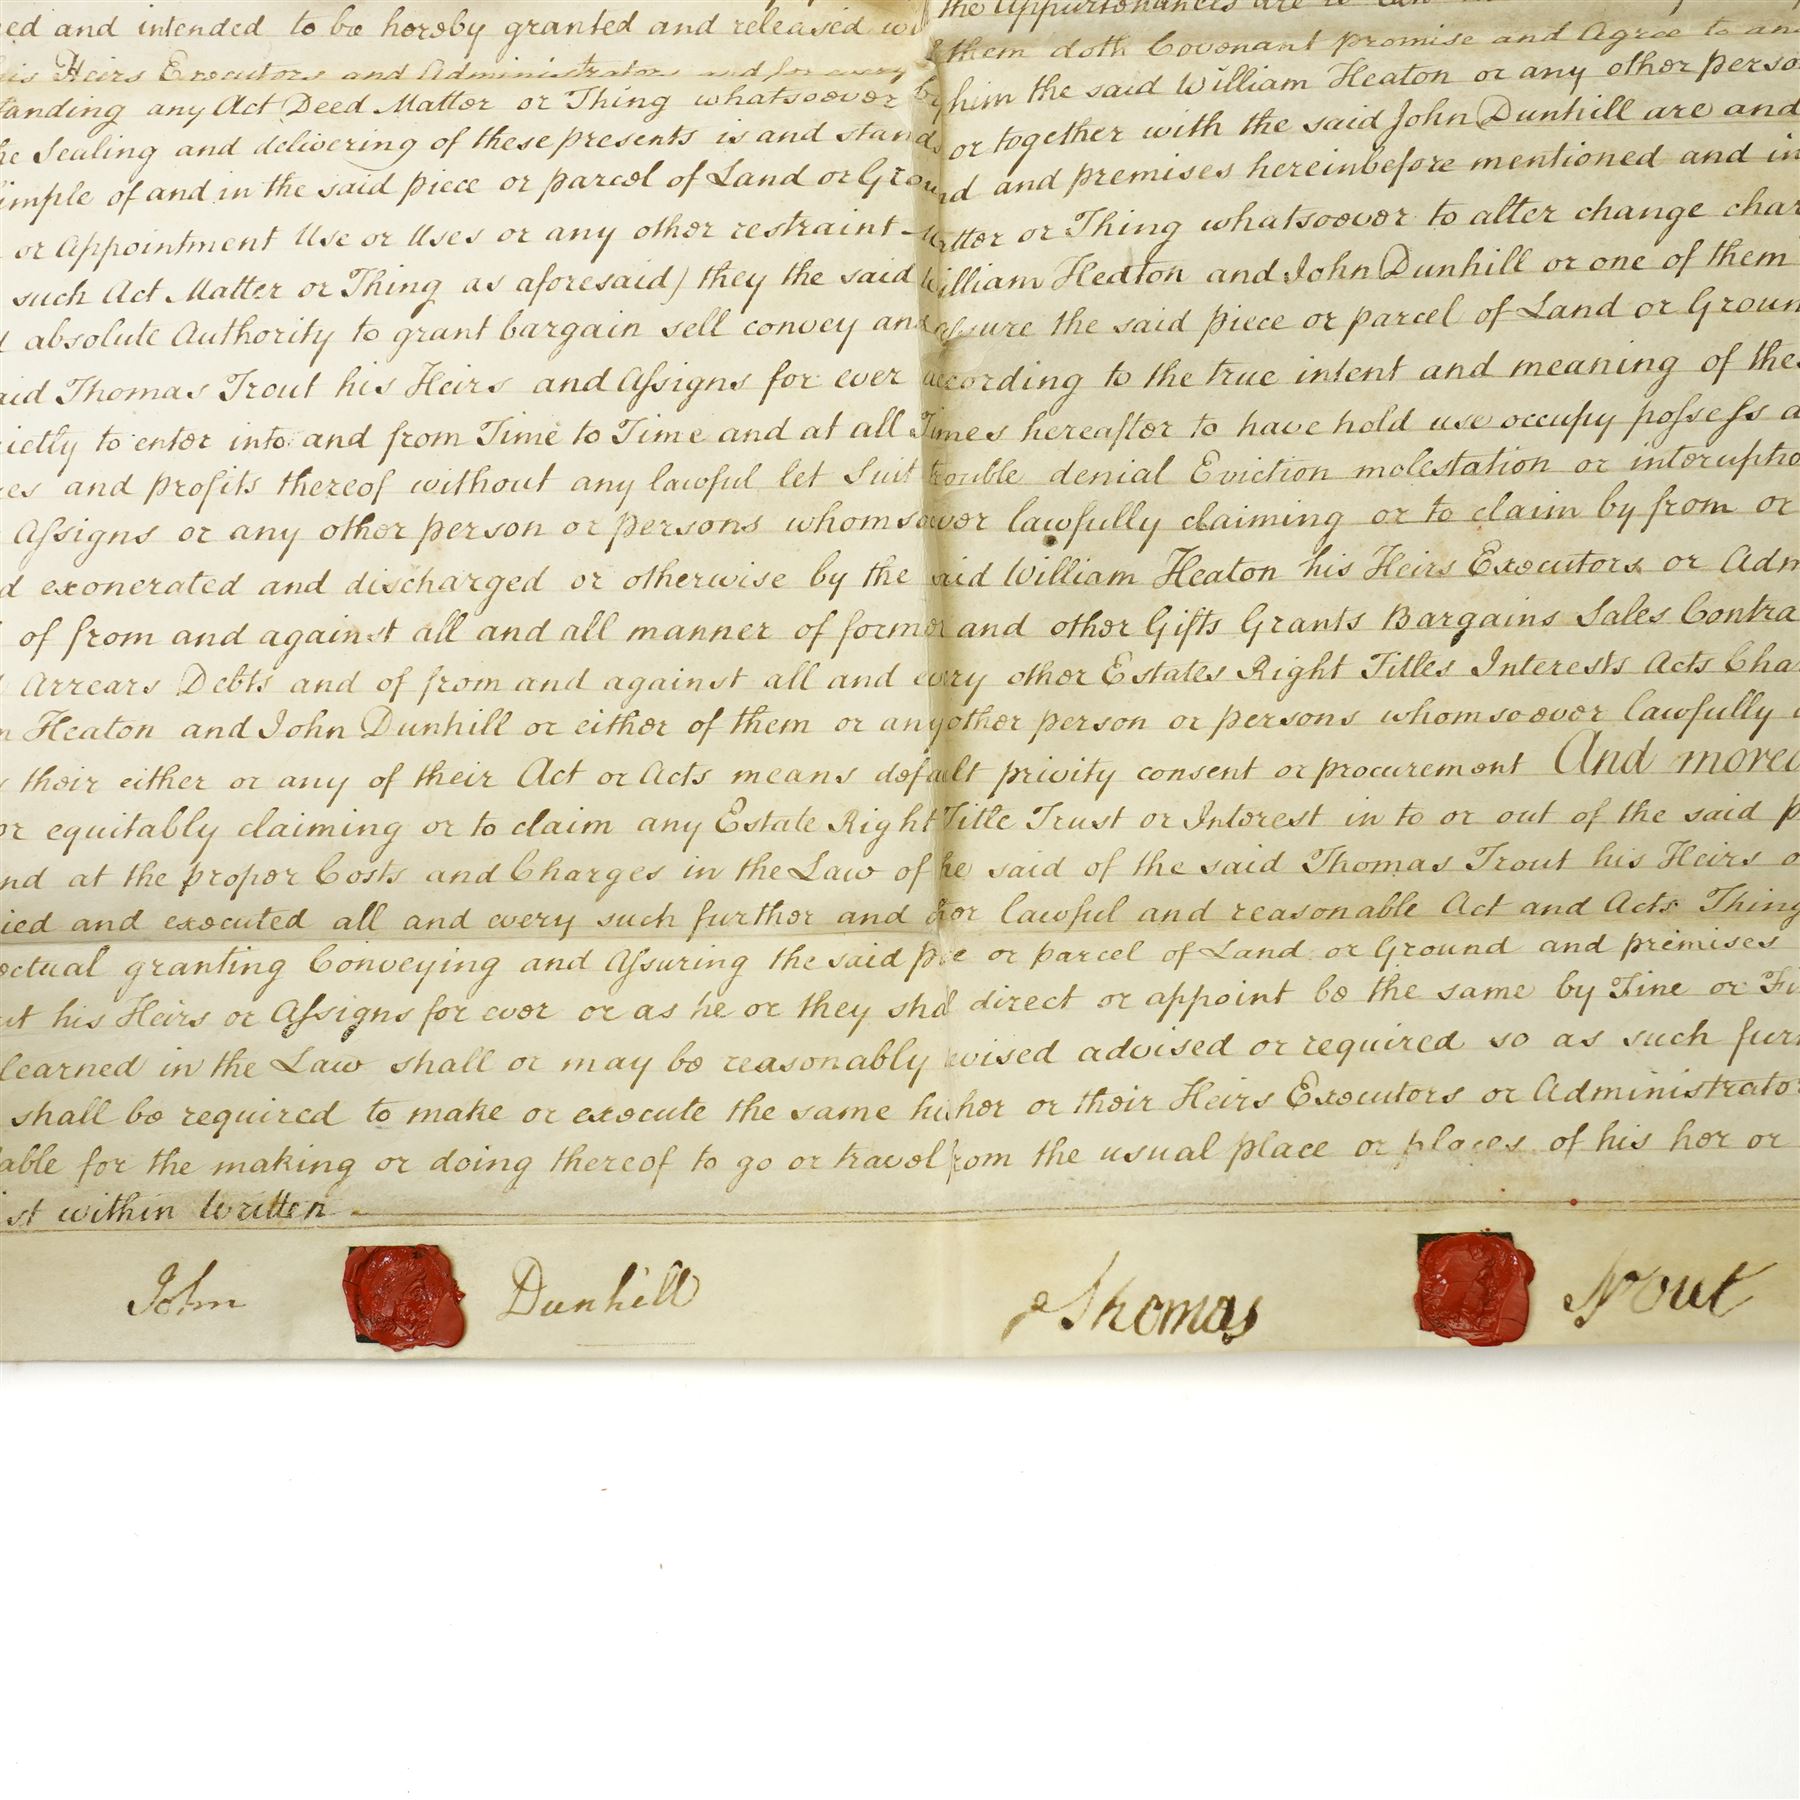 the Appurtenances are
ed and intended to be hereby granted and released
them doth Covenant promise and Agree to and
his Heirs Executors and Administrators and for every
him the said William Heaton or any other perso
tanding any Act Deed Matter or Thing whatsoever by
or together with the said John Dunhill are and
he Sealing and delivering of these presents is and stands
and premises hereinbefore mentioned and in
imple of and in the said piece or parcel of Land or Ground
or Appointment Use or Uses or any other restraint Matter or Thing whatsoever to alter change char
such Act Matter or Thing as aforesaid) they the said William Heaton and John Dunhill or one of them
d absolute Authority to grant bargain sell convey and assure the said piece or parcel of Land or Groun
aid Thomas Trout his Heirs and Assigns for ever according to the true intent and meaning of thes
ietly to enter into and from Time to Time and at all Times hereafter to have hold use occupy possess a
es and profits thereof without any lawful let Suit trouble denial Eviction molestation or interuptio
Assigns or any other person or persons whomsoever lawfully claiming or to claim by from or
d exonerated and discharged or otherwise by the said William Heaton his Heirs Executors or Adm
of from and against all and all manner of former and other Gifts Grants Bargains Sales Contra
Arrears Debts and of from and against all and every other Estates Right Titles Interests Acts Cha
m Heaton and John Dunhill or either of them or any other person or persons whomsoever lawfully
their either or any of their Act or Acts means default privity consent or procurement And moreo
or equitably claiming or to claim any Estate Right Title Trust or Interest in to or out of the said p
nd at the proper Costs and Charges in the Law of he said of the said Thomas Trout his Heirs o
ied and executed all and every such further and other lawful and reasonable Act and Acts Thing
ectual granting Conveying and Assuring the said piece or parcel of Land or Ground and premises
ut his Heirs or Assigns for ever or as he or they shall direct or appoint be the same by Fine or Fi
learned in the Law shall or may be reasonably devised advised or required so as such furt
shall be required to make or execute the same his her or their Heirs Executors or Administrator
able for the making or doing thereof to go or travel from the usual place or places of his her or
st within written
John Dunhill Thomas Trout